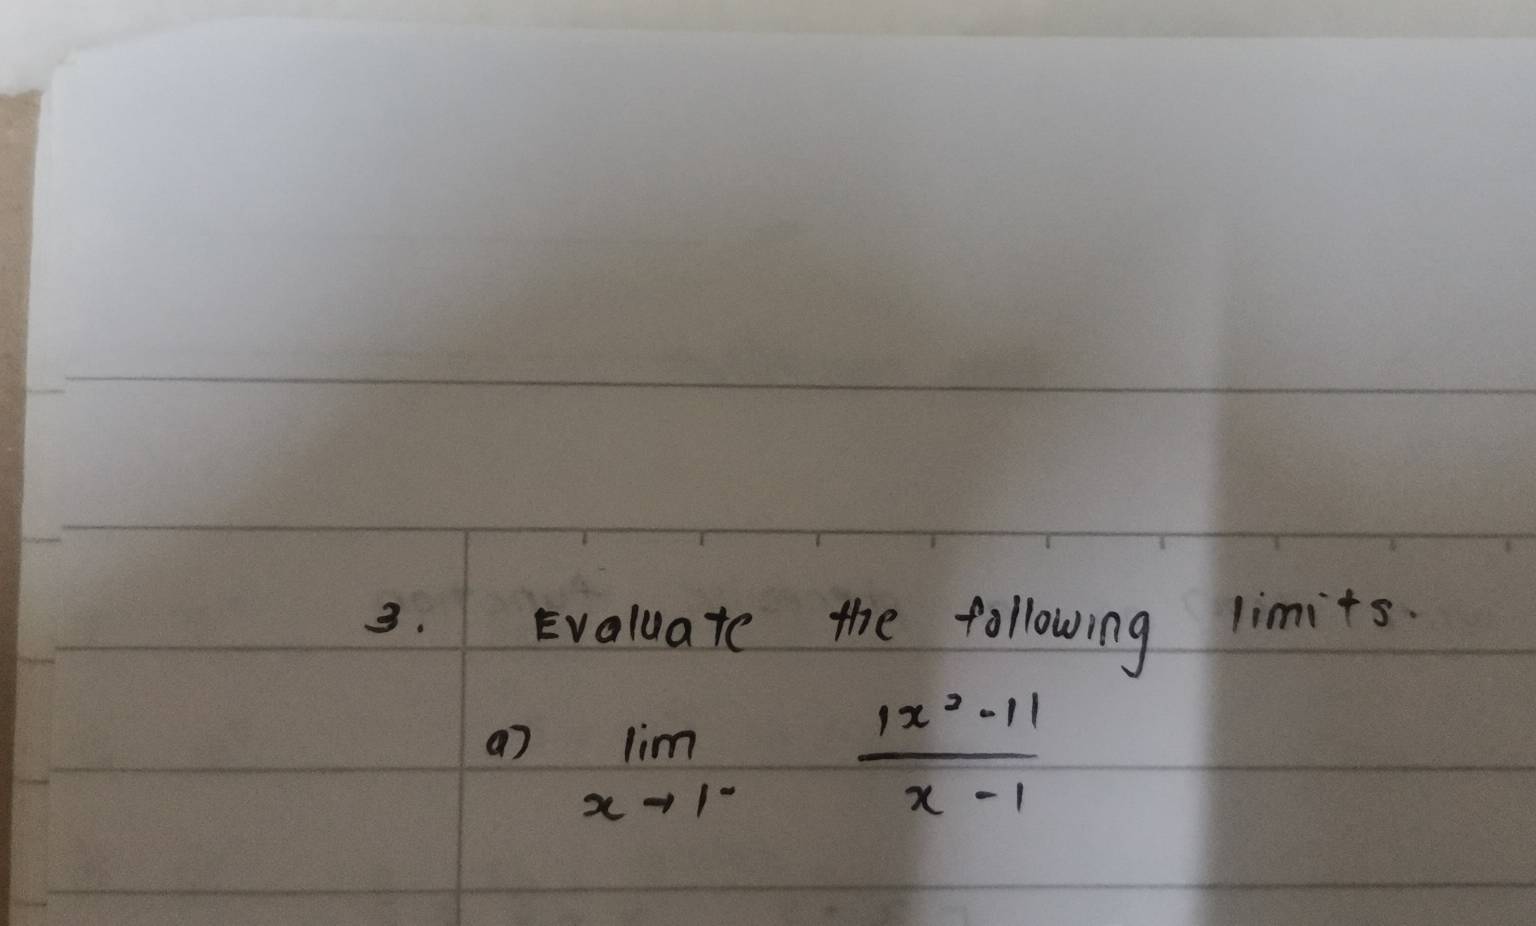 3. Evaluate the following limits.
a) lim |x² - 1|
x → 1⁻ x - 1